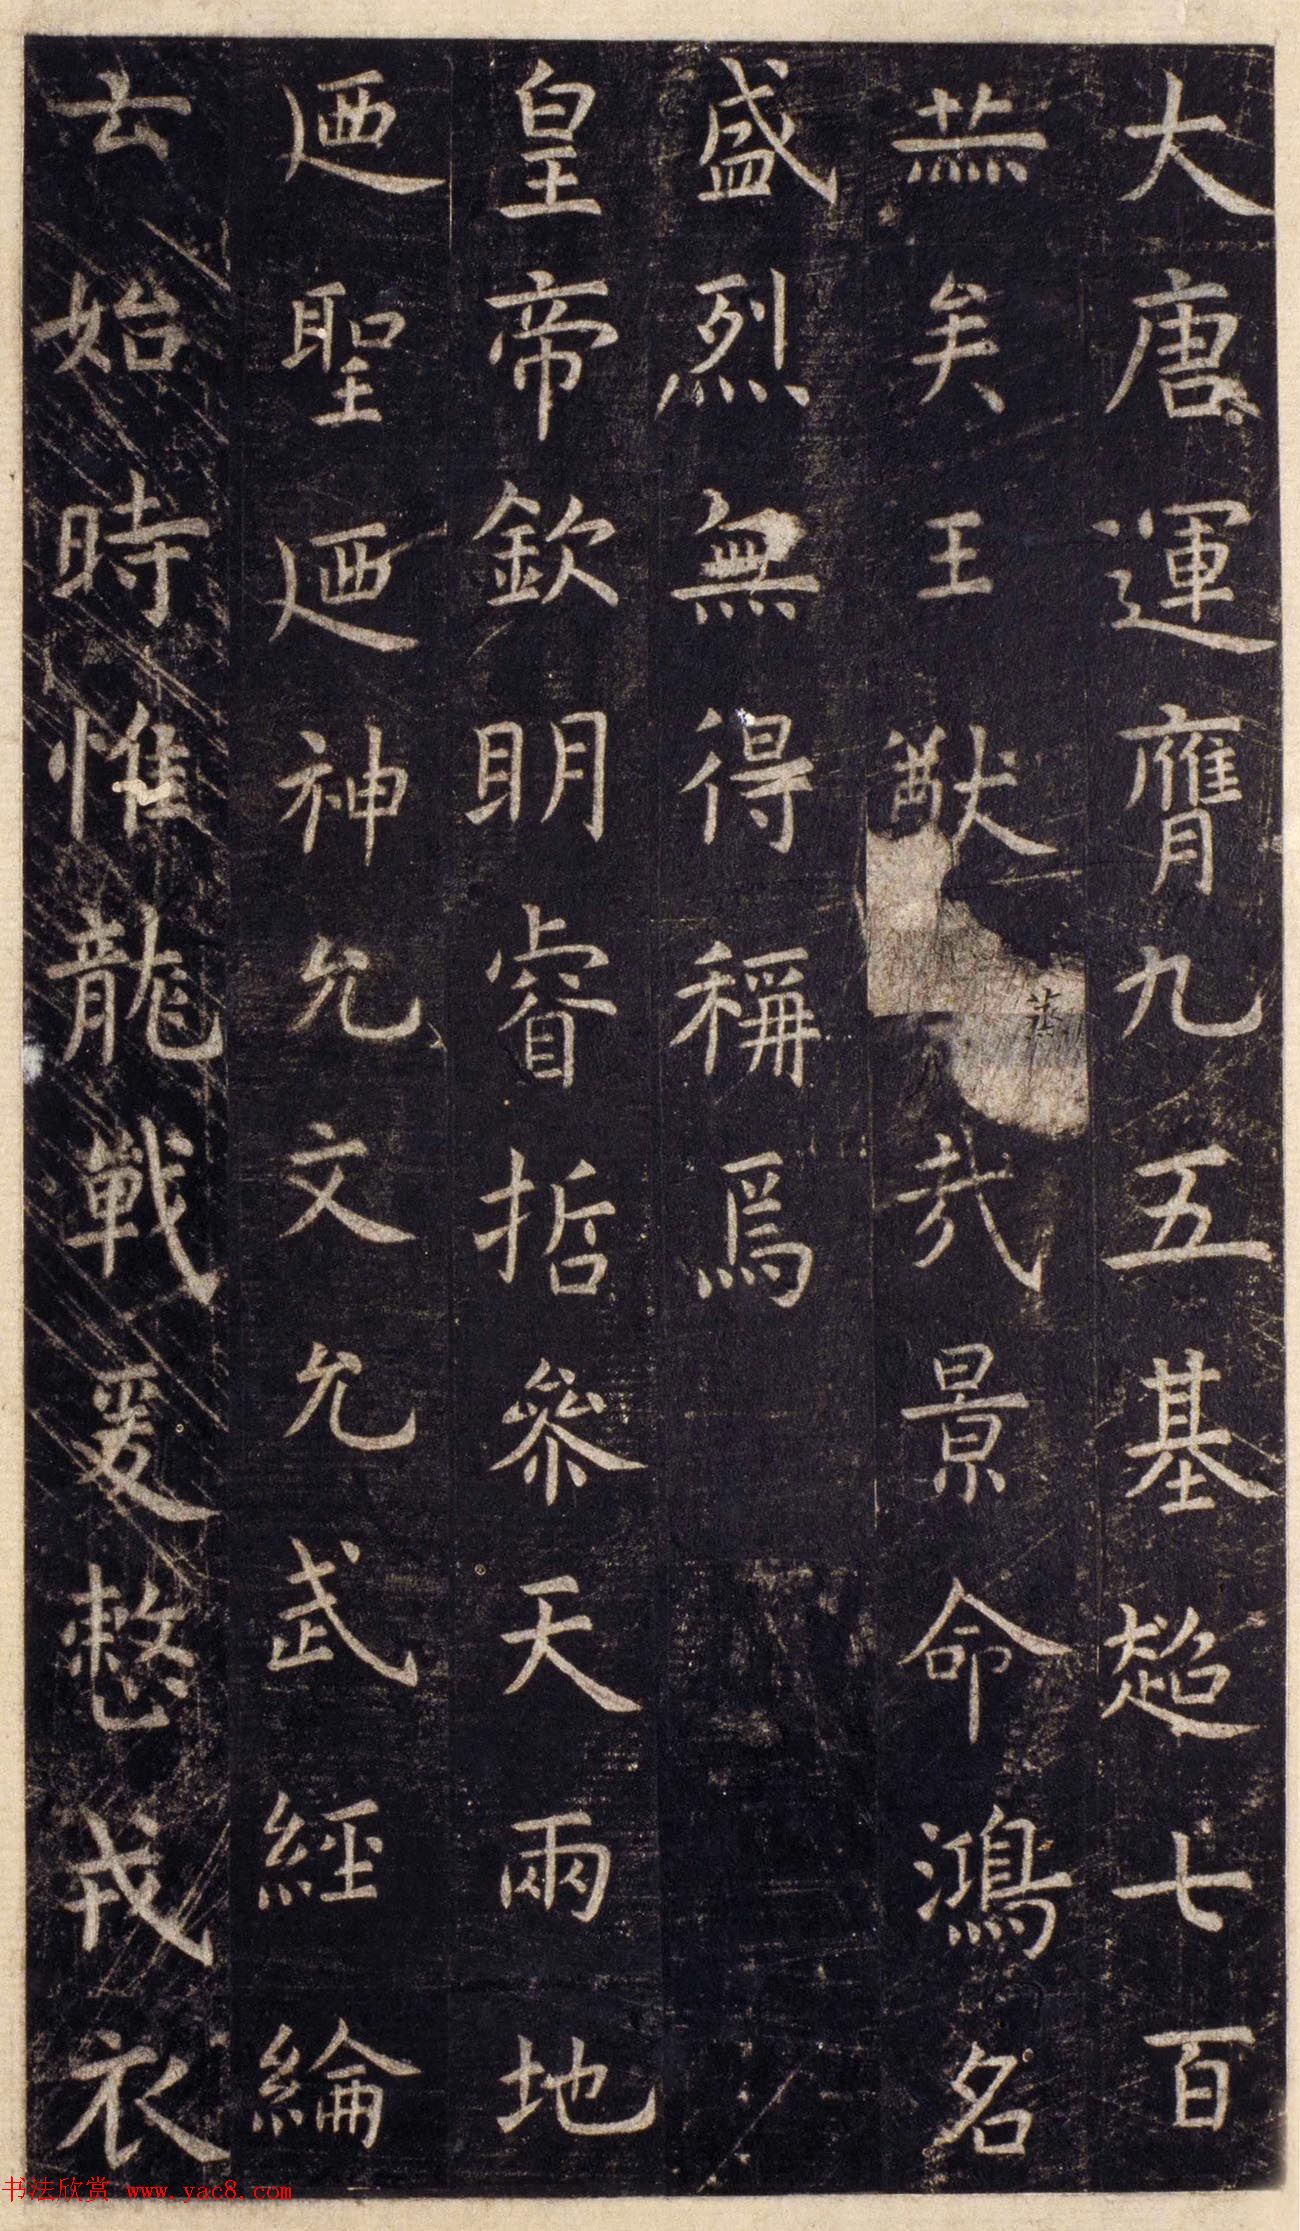 大唐運膺九五基超七百
無矣王猷蒸哉景命鴻名
盛烈無得稱焉
皇帝欽明睿哲參天兩地
廼聖廼神允文允武經綸
云始時惟龍戰爰整戎衣
书法欣赏 www.yac8.com